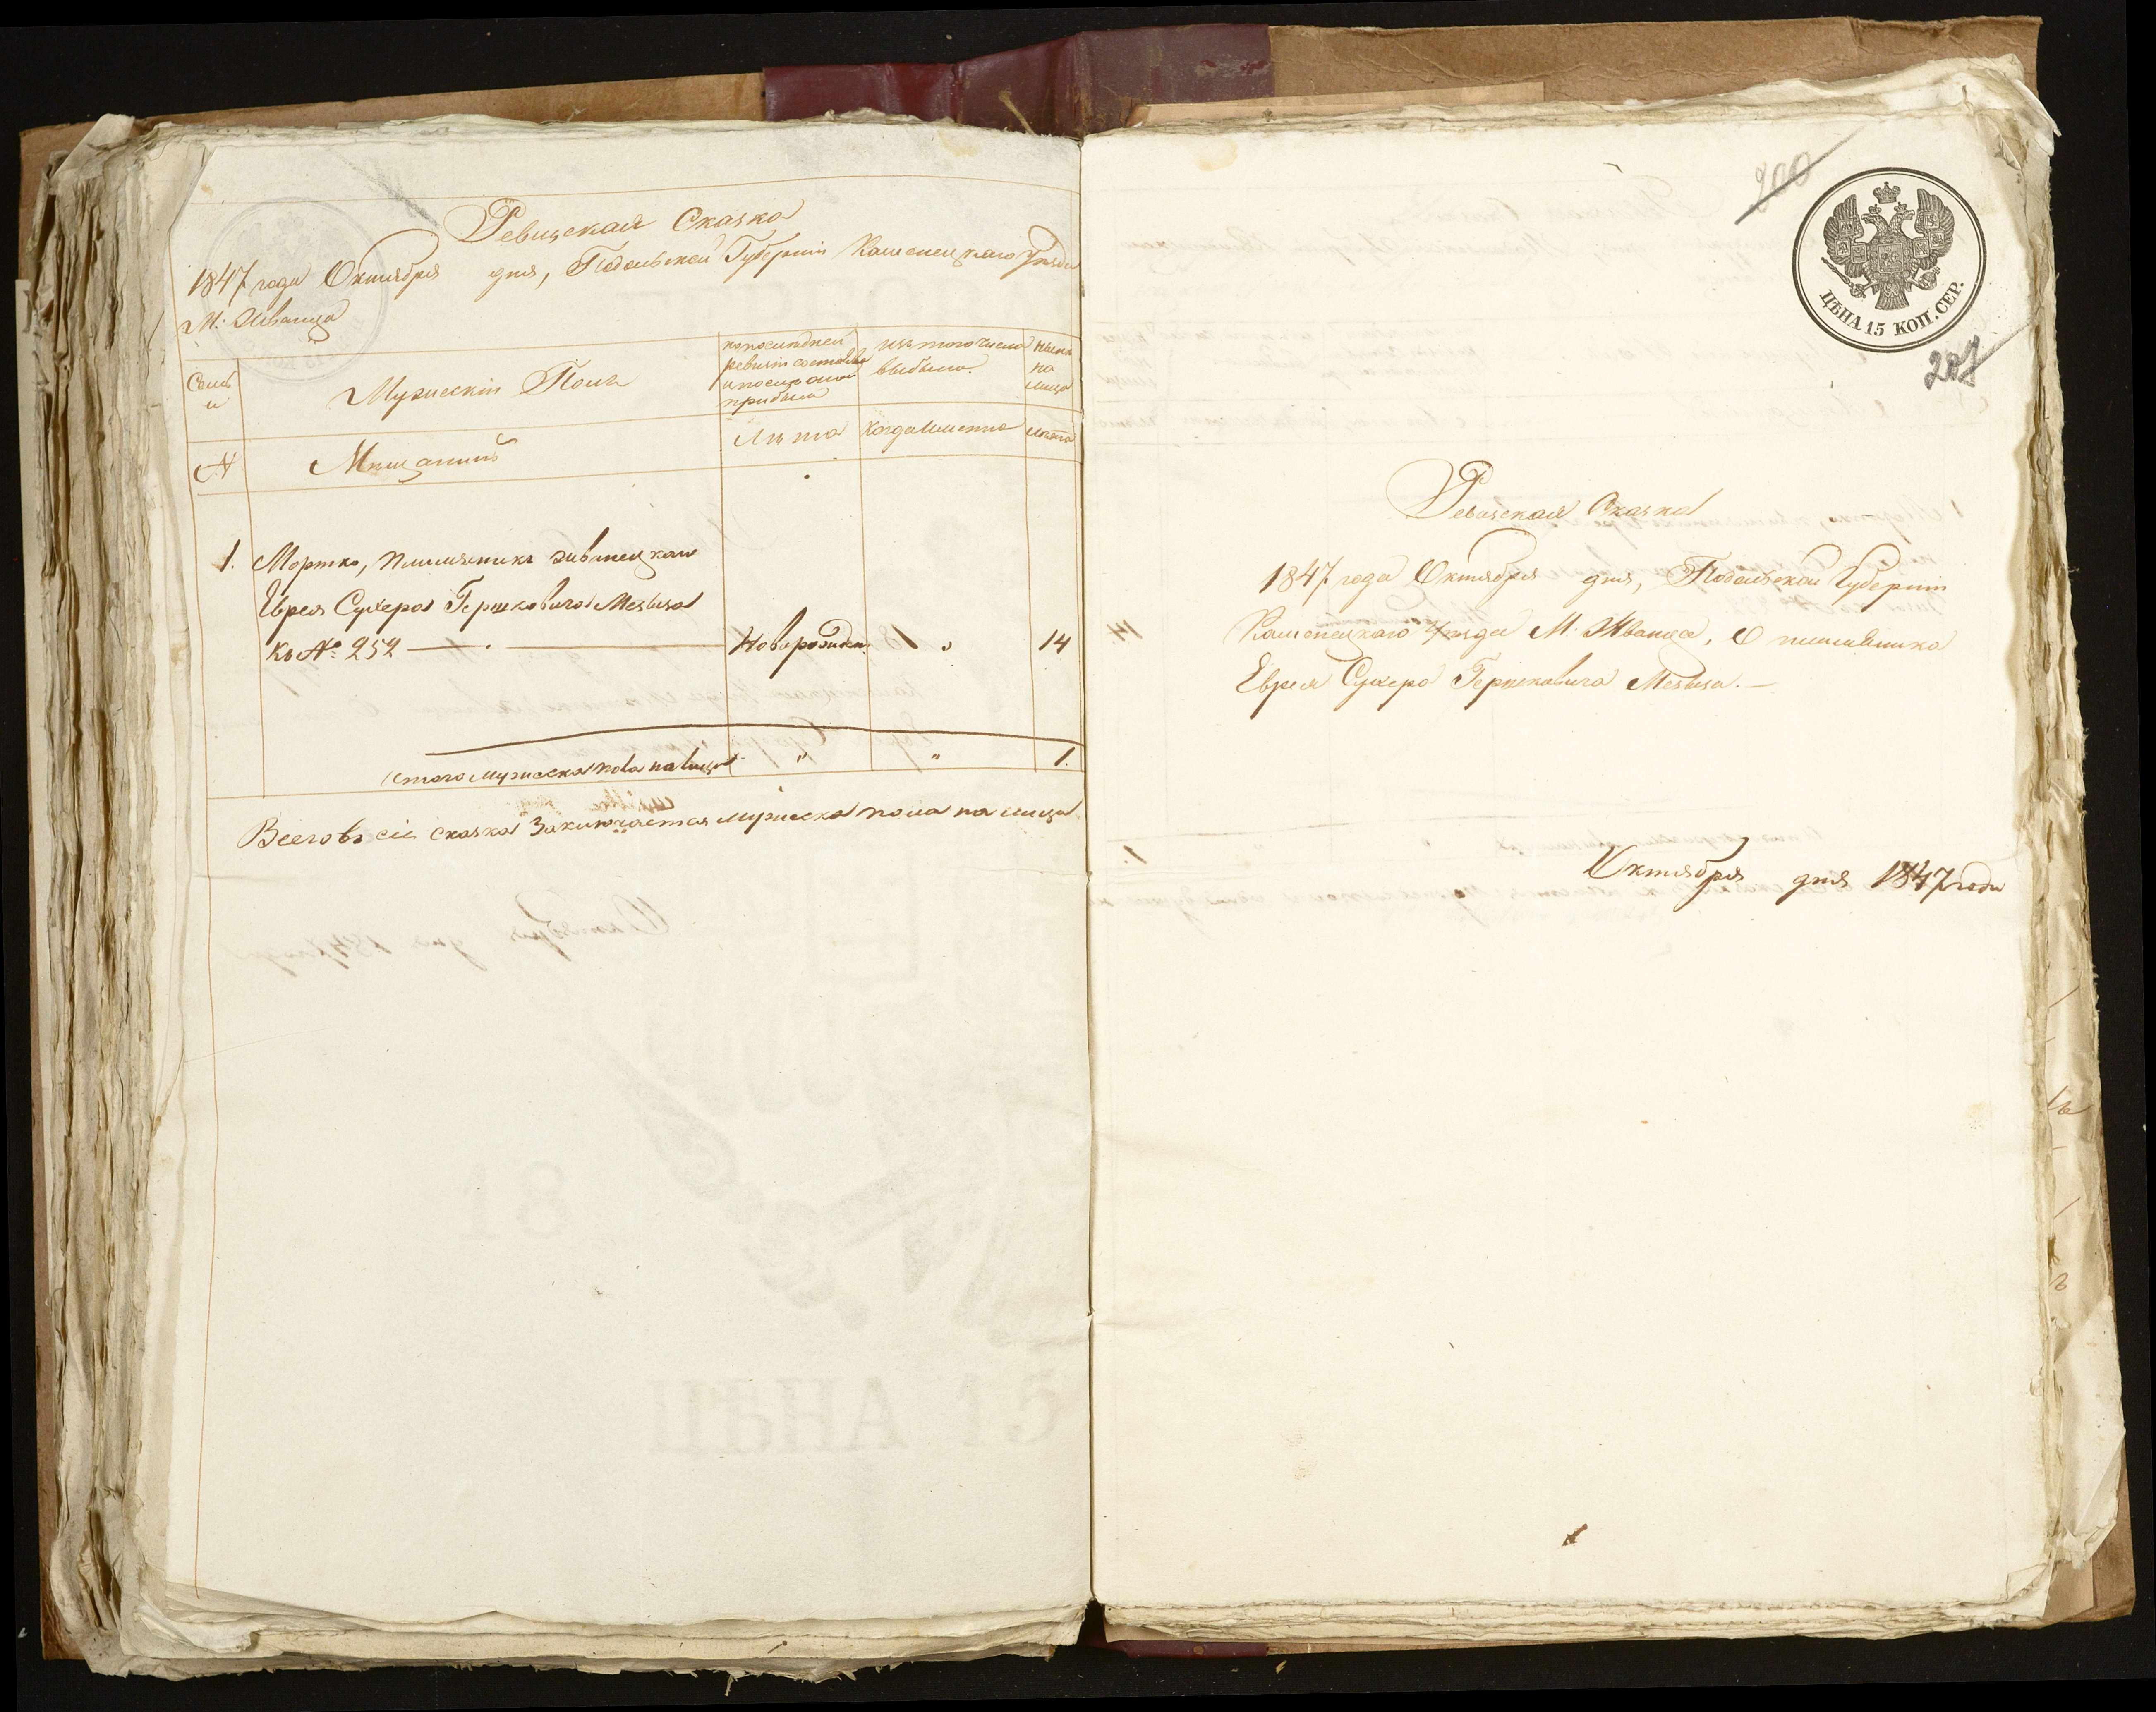 Ревизская Сказка
1847 года Октября дня, Подольской Губернии Каменецкаго Уезда
М: Жванца
Мужеский Полъ
по последней
ревизии состояло
и после оной
прибыло
изъ того числа
выбыло
ныне
на
лицо
№
Мещанинъ
Лета
Когда именно
лета
1. Мортко, племянникъ жванецкаго
Еврея Сухера Гершковича Мезвиза
къ № 252
Новорожден.
14
Итого мужеска пола на лицо " " 1.
Всего въ сей сказке заключается мужеска пола на лицо
200
ЦѢНА 15 КОП. СЕР.
207
Ревизская Сказка
1847 года Октября дня, Подольской Губернии
Каменецкаго Уезда М: Жванца, О племяннике
Еврея Сухера Гершковича Мезвиза. —
Октября дня 1847 года